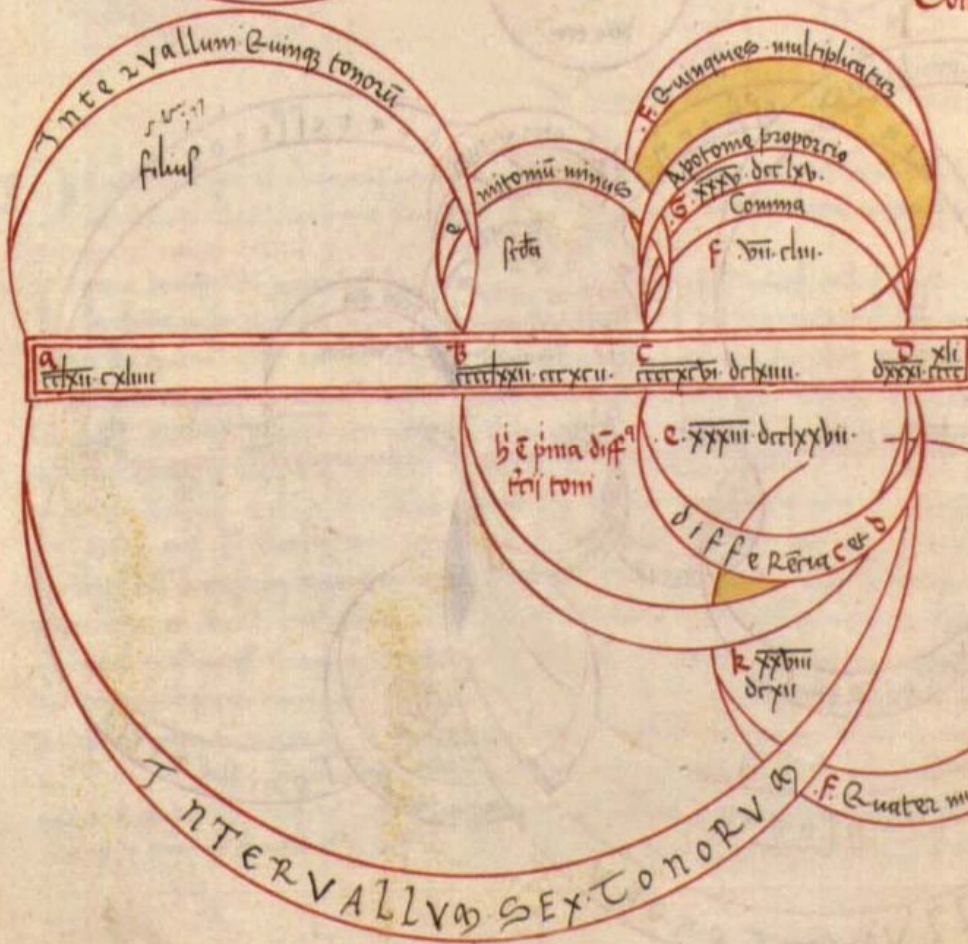 Intervallum Quinq; tonorū
filius
e
mitoniū minus
.F. Quinquies multiplicatus
Apotome proporcio
.G. x̅x̅x̅v̅. dcclxv.
Comma
F v̅i̅i̅. cliii.
a B C D
c̅c̅l̅x̅i̅i̅. cxliiii c̅c̅c̅c̅l̅x̅x̅i̅i̅. cccxcii. c̅c̅c̅c̅x̅c̅v̅i̅. dclxiiii. d̅x̅x̅x̅i̅. cccc xli
pͥma diff
tcii toni
.e. x̅x̅x̅i̅i̅i̅. dcclxxvii.
differēcia C et D
k x̅x̅v̅i̅i̅i̅
dcxii
.F. Quater
INTERVALLVM SEX TONORVM